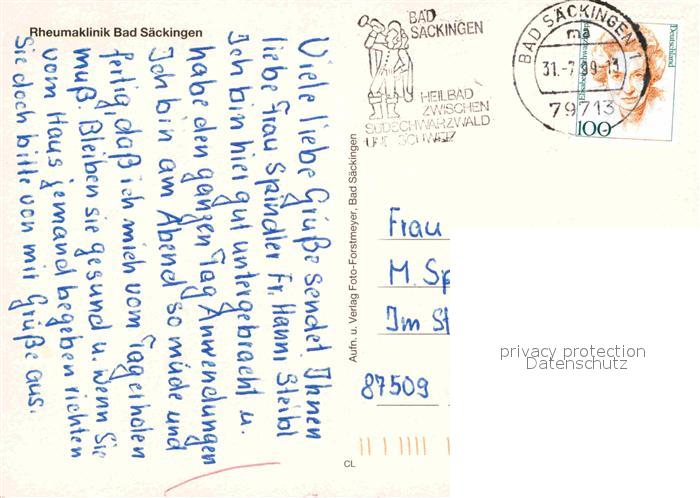 Rheumaklinik Bad Säckingen
Viele liebe Grüße sendet Ihnen
liebe Frau Spindler Fr. Hanni Sleibl
Ich bin hier gut untergebracht u.
habe den ganzen Tag Anwendungen
Ich bin am Abend so müde und
fertig, daß ich mich vom Tag erholen
muß. Bleiben sie gesund u. wenn Sie
vom Haus jemand begegnen richten
Sie doch bitte von mir Grüße aus.
Aufn. u. Verlag Foto-Forstmeyer, Bad Säckingen
CL
BAD
SÄCKINGEN
HEILBAD
ZWISCHEN
SÜDSCHWARZWALD
UND SCHWEIZ
BAD SÄCKINGEN 1
ma
31.-7.99-13
79713
Deutschland
100
Frau
M. Sp
Im St
87509
privacy protection
Datenschutz